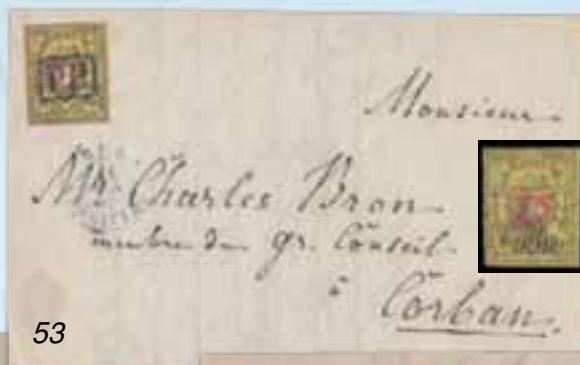 Monsieur
Mr. Charles Bron
membre du gr. Conseil
à
Corban.
53